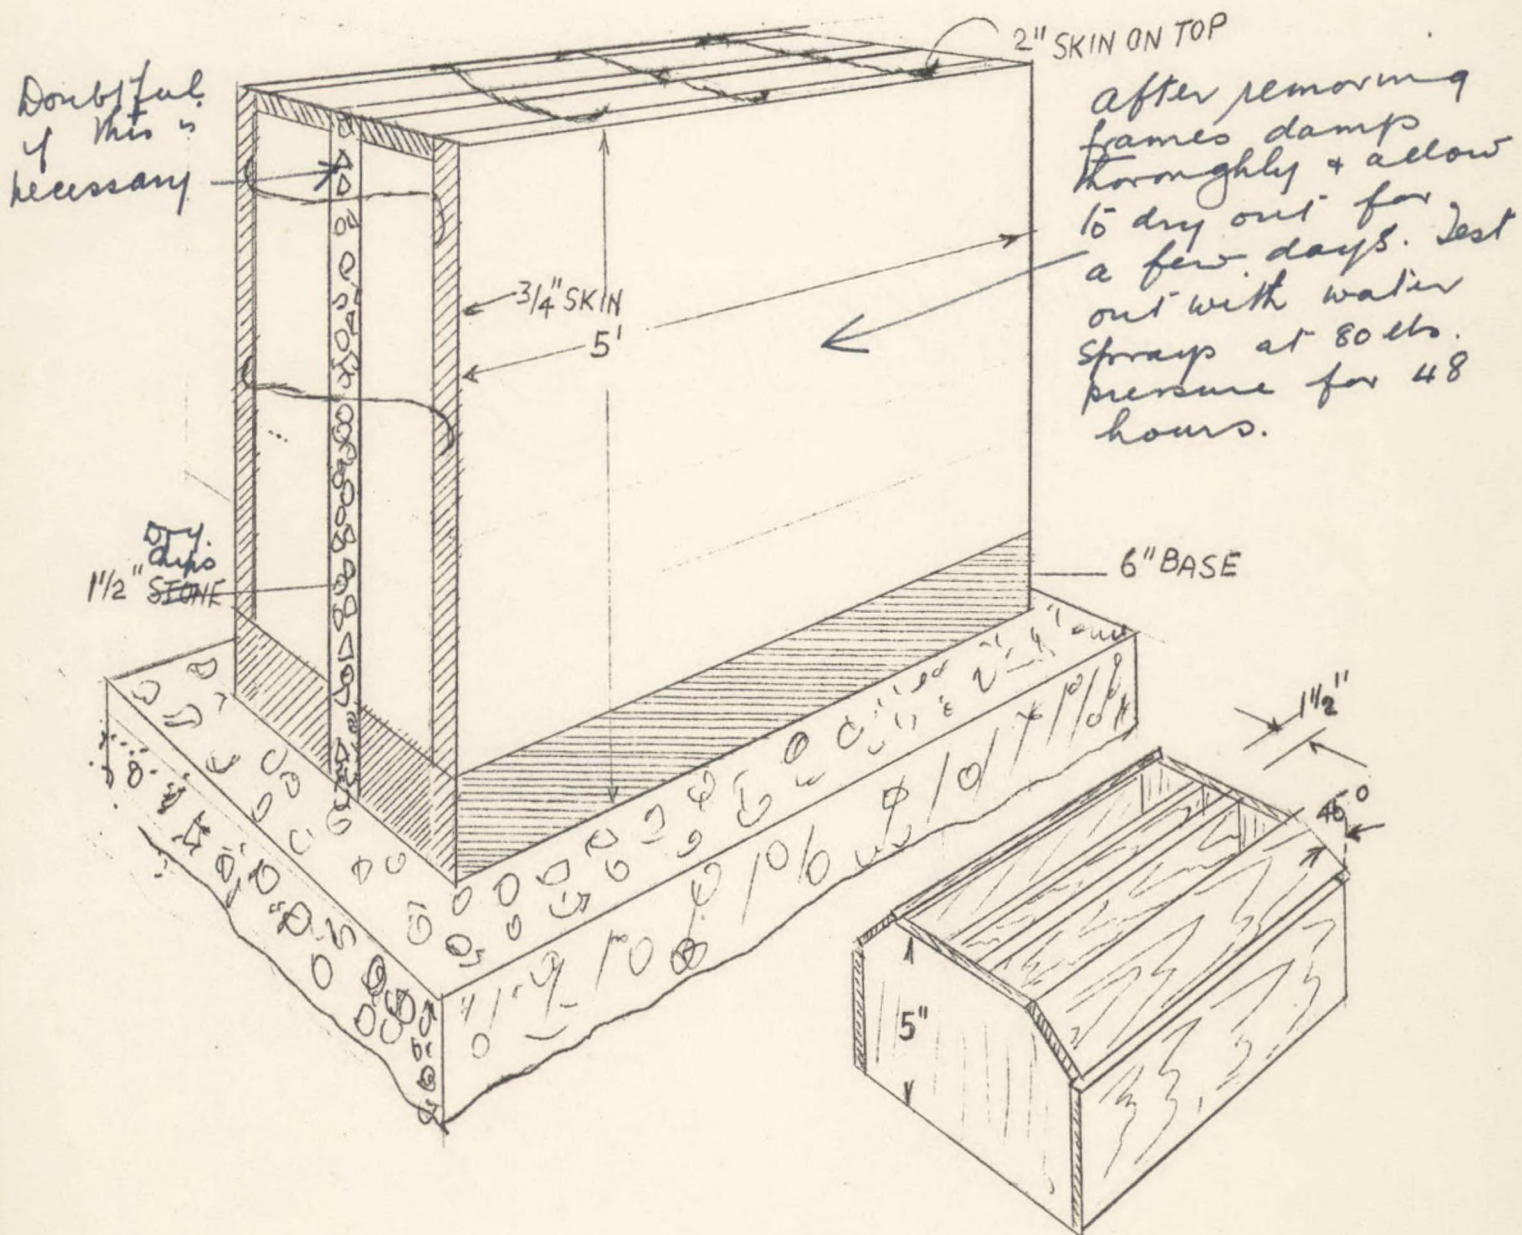 2" SKIN ON TOP
Doubtful
if this is
necessary
after removing
frames damp
thoroughly & allow
to dry out for
a few days. Test
out with water
sprays at 80 lbs.
pressure for 48
hours.
3/4" SKIN
5'
Dry.
chips
1 1/2" STONE
6" BASE
1 1/2"
5"